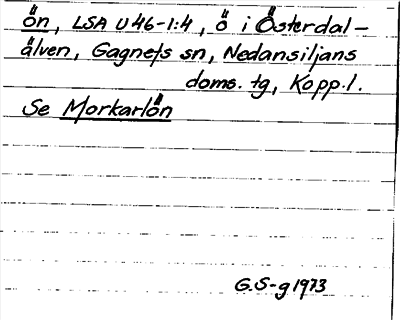 ön, LSA U46-1:4, ö i Österdal-
älven, Gagnefs sn, Nedansiljans
doms. tg, Kopp.l.
Se Morkarlön
G.S-g 1973